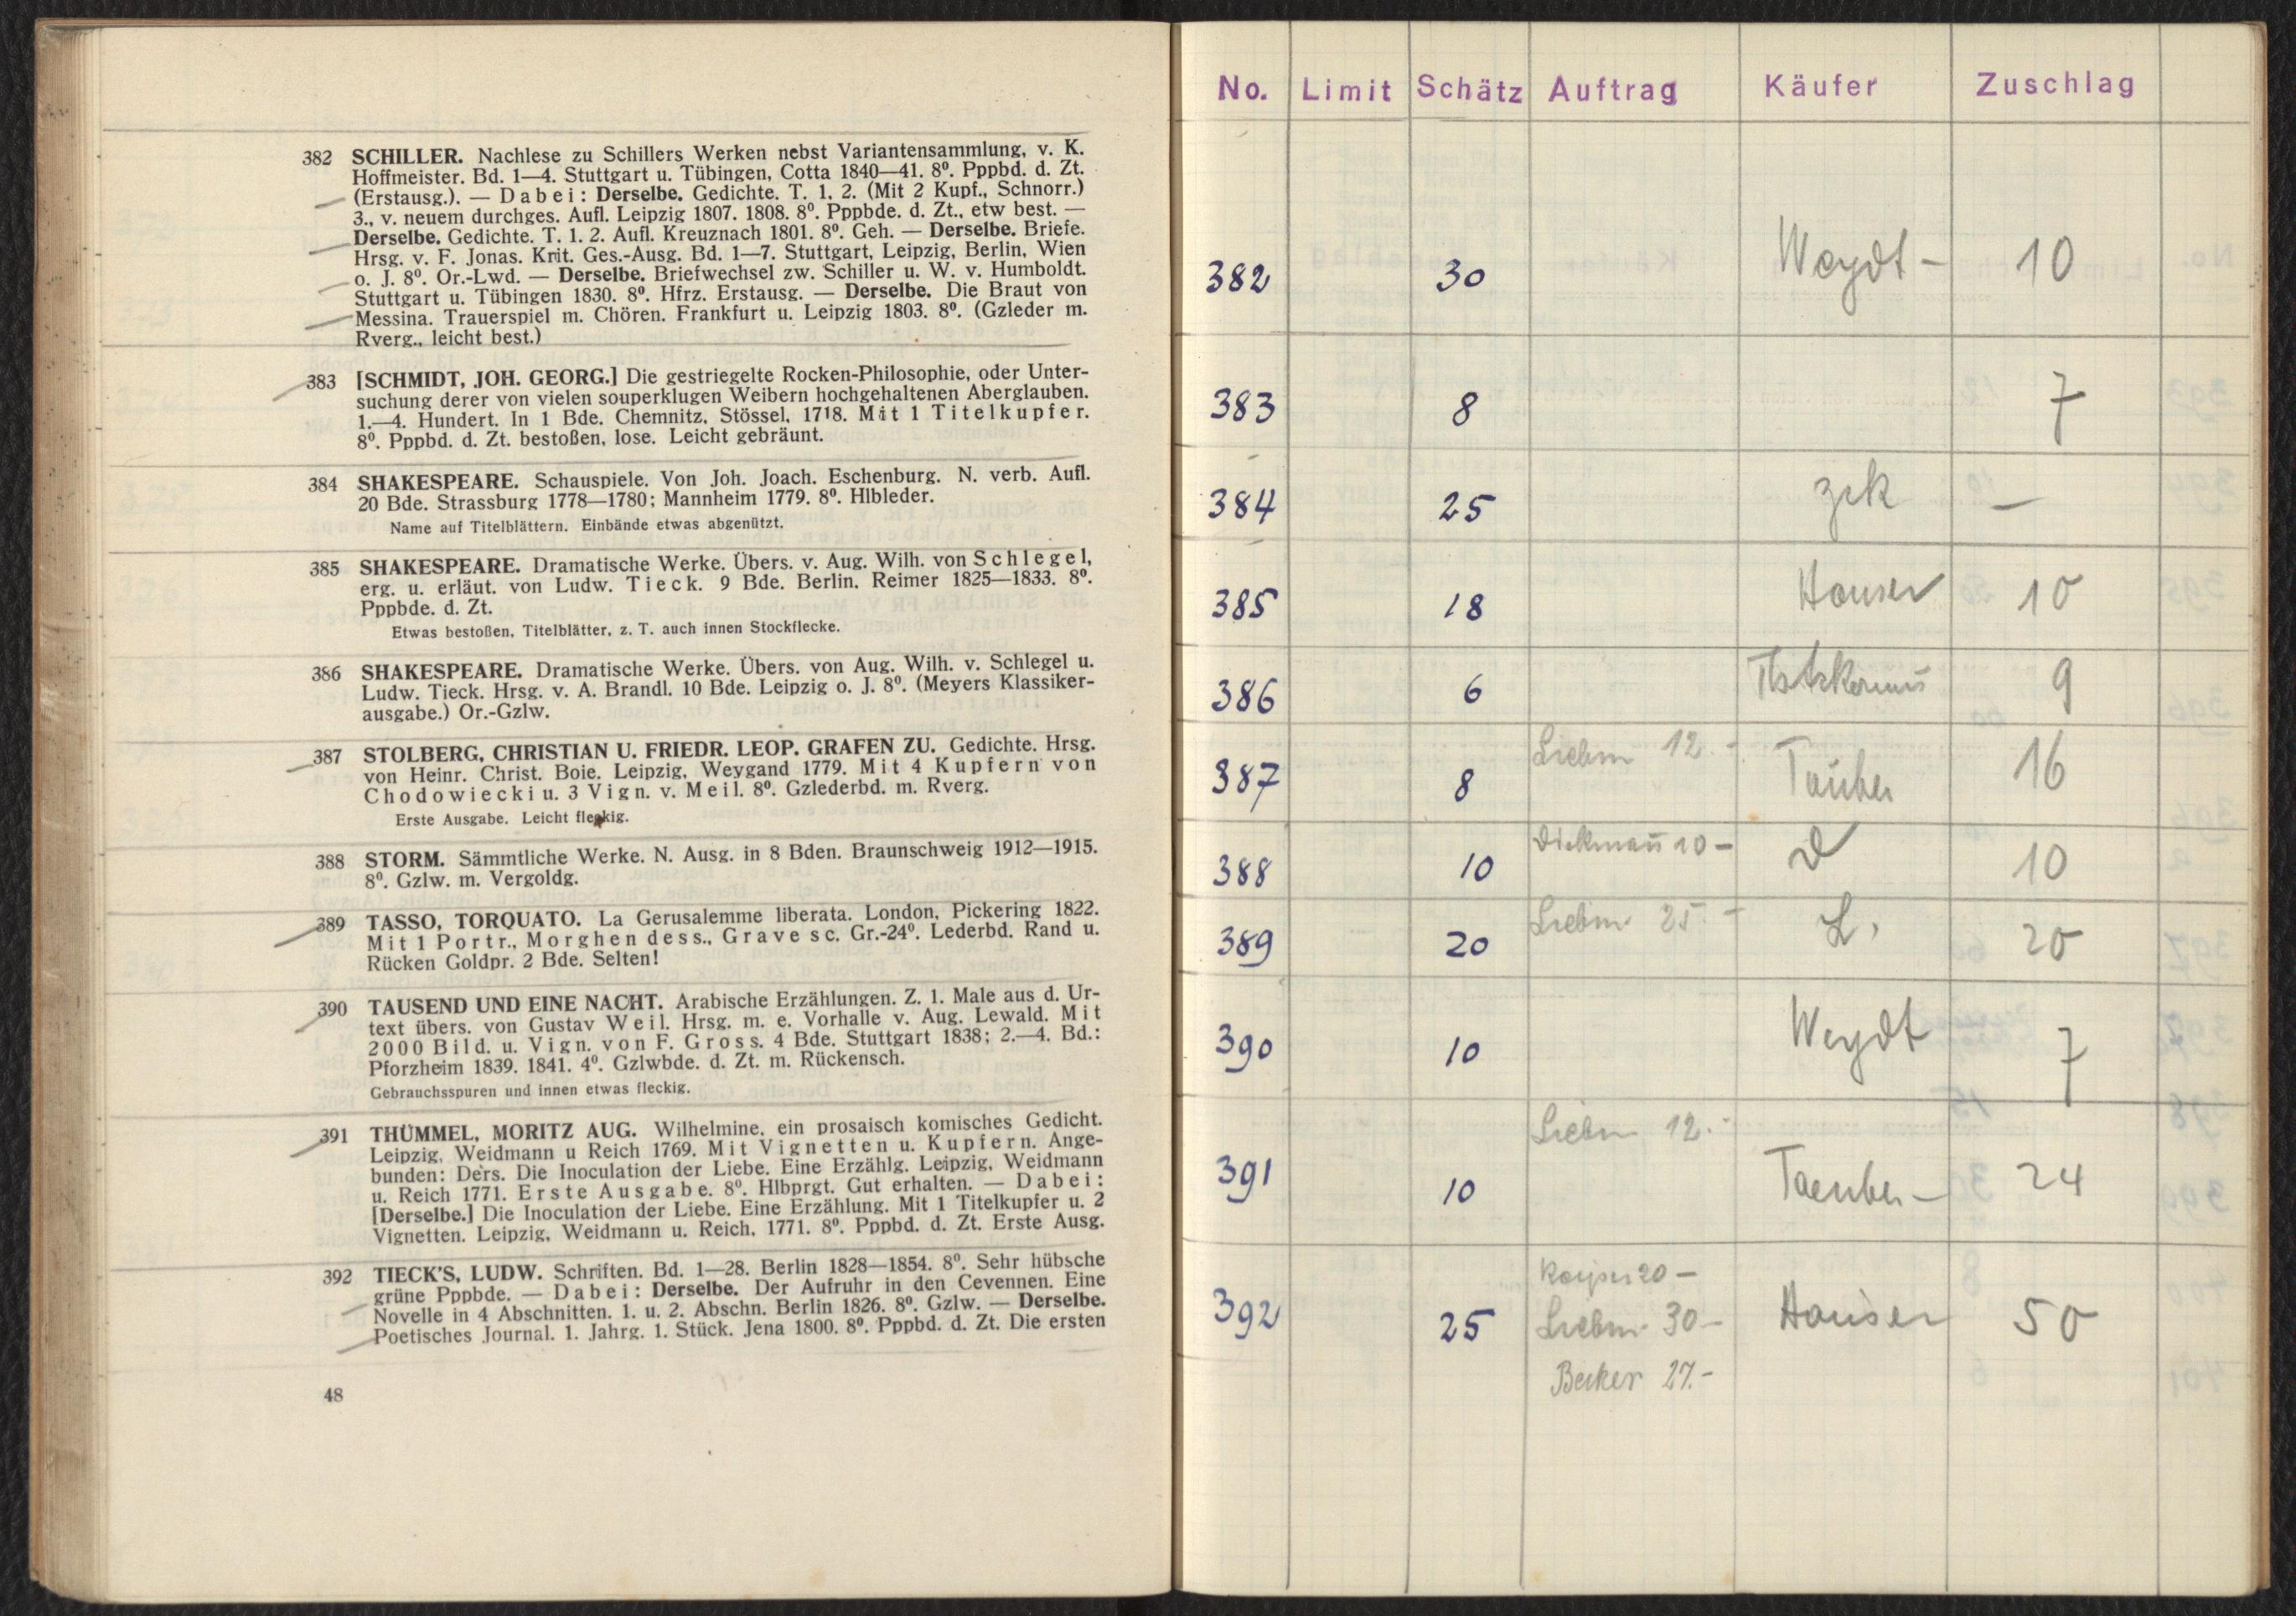 382 SCHILLER. Nachlese zu Schillers Werken nebst Variantensammlung, v. K.
Hoffmeister. Bd. 1—4. Stuttgart u. Tübingen, Cotta 1840—41. 8⁰. Pppbd. d. Zt.
(Erstausg.). — Dabei: Derselbe. Gedichte. T. 1. 2. (Mit 2 Kupf., Schnorr.)
3., v. neuem durchges. Aufl. Leipzig 1807. 1808. 8⁰. Pppbde. d. Zt., etw best. —
Derselbe. Gedichte. T. 1. 2. Aufl. Kreuznach 1801. 8⁰. Geh. — Derselbe. Briefe.
Hrsg. v. F. Jonas. Krit. Ges.-Ausg. Bd. 1—7. Stuttgart, Leipzig, Berlin, Wien
o. J. 8⁰. Or.-Lwd. — Derselbe. Briefwechsel zw. Schiller u. W. v. Humboldt.
Stuttgart u. Tübingen 1830. 8⁰. Hfrz. Erstausg. — Derselbe. Die Braut von
Messina. Trauerspiel m. Chören. Frankfurt u. Leipzig 1803. 8⁰. (Gzleder m.
Rverg., leicht best.)
383 [SCHMIDT, JOH. GEORG.] Die gestriegelte Rocken-Philosophie, oder Unter-
suchung derer von vielen souperklugen Weibern hochgehaltenen Aberglauben.
1.—4. Hundert. In 1 Bde. Chemnitz, Stössel, 1718. Mit 1 Titelkupfer.
8⁰. Pppbd. d. Zt. bestoßen, lose. Leicht gebräunt.
384 SHAKESPEARE. Schauspiele. Von Joh. Joach. Eschenburg. N. verb. Aufl.
20 Bde. Strassburg 1778—1780; Mannheim 1779. 8⁰. Hlbleder.
Name auf Titelblättern. Einbände etwas abgenützt.
385 SHAKESPEARE. Dramatische Werke. Übers. v. Aug. Wilh. von Schlegel,
erg. u. erläut. von Ludw. Tieck. 9 Bde. Berlin. Reimer 1825—1833. 8⁰.
Pppbde. d. Zt.
Etwas bestoßen, Titelblätter, z. T. auch innen Stockflecke.
386 SHAKESPEARE. Dramatische Werke. Übers. von Aug. Wilh. v. Schlegel u.
Ludw. Tieck. Hrsg. v. A. Brandl. 10 Bde. Leipzig o. J. 8⁰. (Meyers Klassiker-
ausgabe.) Or.-Gzlw.
387 STOLBERG, CHRISTIAN U. FRIEDR. LEOP. GRAFEN ZU. Gedichte. Hrsg.
von Heinr. Christ. Boie. Leipzig, Weygand 1779. Mit 4 Kupfern von
Chodowiecki u. 3 Vign. v. Meil. 8⁰. Gzlederbd. m. Rverg.
Erste Ausgabe. Leicht fleckig.
388 STORM. Sämmtliche Werke. N. Ausg. in 8 Bden. Braunschweig 1912—1915.
8⁰. Gzlw. m. Vergoldg.
389 TASSO, TORQUATO. La Gerusalemme liberata. London, Pickering 1822.
Mit 1 Portr., Morghen dess., Grave sc. Gr.-24⁰. Lederbd. Rand u.
Rücken Goldpr. 2 Bde. Selten!
390 TAUSEND UND EINE NACHT. Arabische Erzählungen. Z. 1. Male aus d. Ur-
text übers. von Gustav Weil. Hrsg. m. e. Vorhalle v. Aug. Lewald. Mit
2000 Bild. u. Vign. von F. Gross. 4 Bde. Stuttgart 1838; 2.—4. Bd.:
Pforzheim 1839. 1841. 4⁰. Gzlwbde. d. Zt. m. Rückensch.
Gebrauchsspuren und innen etwas fleckig.
391 THÜMMEL, MORITZ AUG. Wilhelmine, ein prosaisch komisches Gedicht.
Leipzig, Weidmann u Reich 1769. Mit Vignetten u. Kupfern. Ange-
bunden: Ders. Die Inoculation der Liebe. Eine Erzählg. Leipzig, Weidmann
u. Reich 1771. Erste Ausgabe. 8⁰. Hlbprgt. Gut erhalten. — Dabei:
[Derselbe.] Die Inoculation der Liebe. Eine Erzählung. Mit 1 Titelkupfer u. 2
Vignetten. Leipzig, Weidmann u. Reich, 1771. 8⁰. Pppbd. d. Zt. Erste Ausg.
392 TIECK'S, LUDW. Schriften. Bd. 1—28. Berlin 1828—1854. 8⁰. Sehr hübsche
grüne Pppbde. — Dabei: Derselbe. Der Aufruhr in den Cevennen. Eine
Novelle in 4 Abschnitten. 1. u. 2. Abschn. Berlin 1826. 8⁰. Gzlw. — Derselbe.
Poetisches Journal. 1. Jahrg. 1. Stück. Jena 1800. 8⁰. Pppbd. d. Zt. Die ersten
48
No. Limit Schätz Auftrag Käufer Zuschlag
382 30 Weydt - 10
383 8 7
384 25 zrk —
385 18 Hauser 10
386 6 9
387 8 Liebm 12.- Tauber 16
388 10 Diekmann 10 - D 10
389 20 Liebm. 25.- L. 20
390 10 Weydt 7
391 10 Liebm 12.- Taeuber - 24
392 25 Kayser 20 - Hauser 50
Liebm. 30 -
Becker 27.-